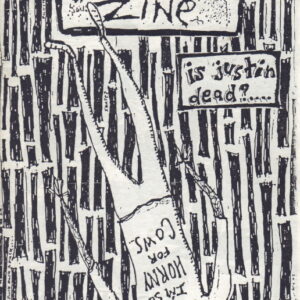 ZINE
is justin
dead?....
I'M SO
HORNY
FOR
COWS